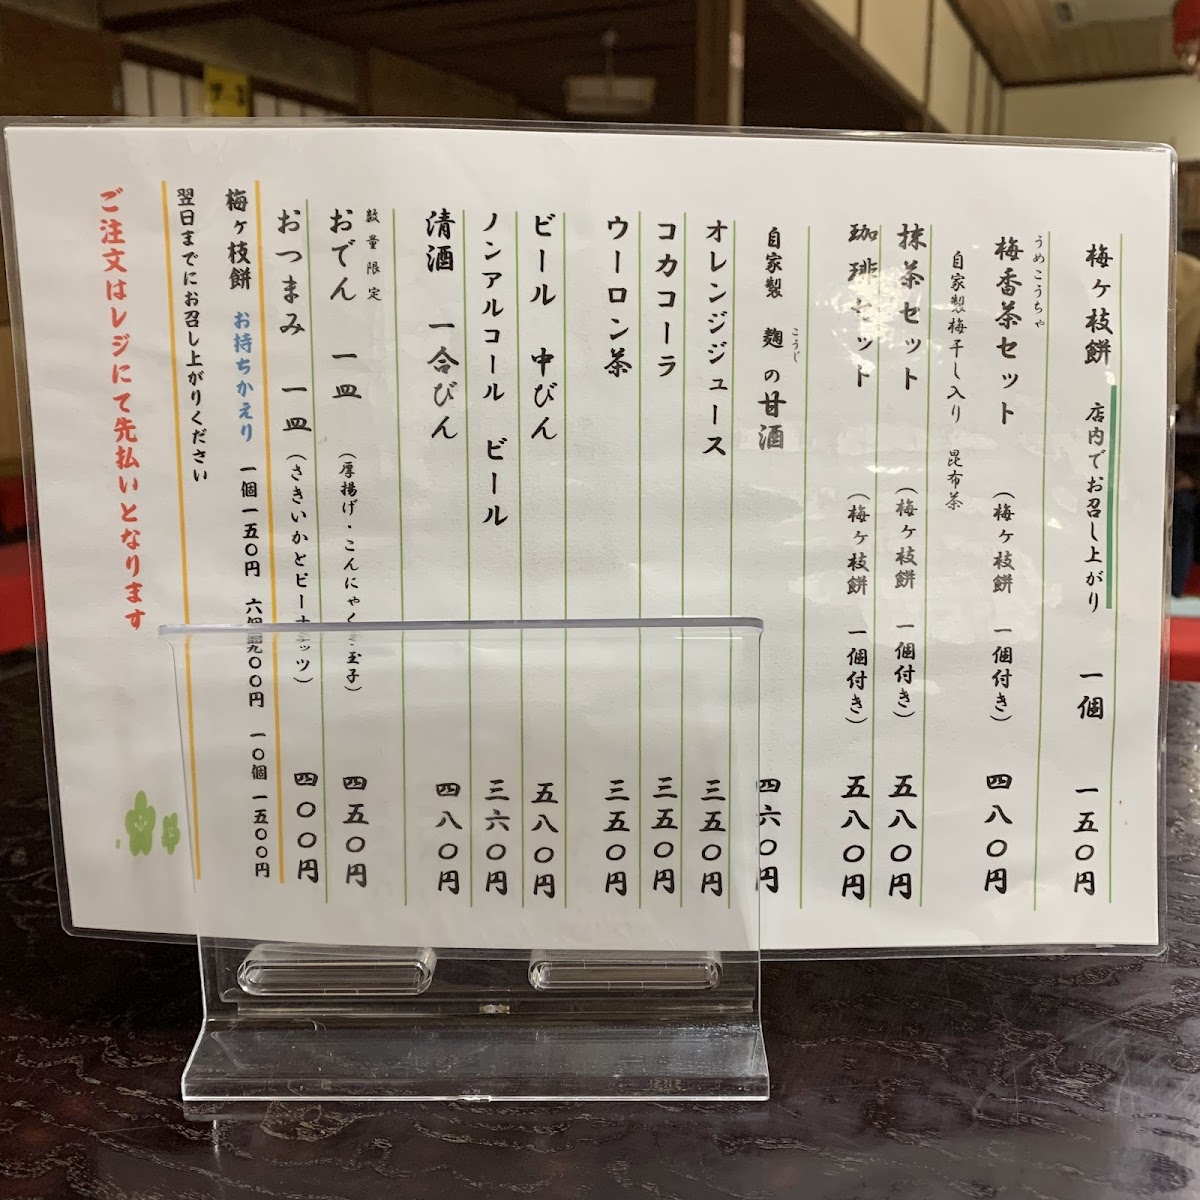 梅ヶ枝餅 店内でお召し上がり 一個 一五〇円
うめこうちゃ
梅香茶セット (梅ヶ枝餅 一個付き) 四八〇円
自家製梅干し入り 昆布茶
抹茶セット (梅ヶ枝餅 一個付き) 五八〇円
珈琲セット (梅ヶ枝餅 一個付き) 五八〇円
こうじ
自家製 麹の甘酒 四六〇円
オレンジジュース 三五〇円
コカコーラ 三五〇円
ウーロン茶 三五〇円
ビール 中びん 五八〇円
ノンアルコール ビール 三六〇円
清酒 一合びん 四八〇円
数量限定
おでん 一皿 (厚揚げ・こんにゃく・玉子) 四五〇円
おつまみ 一皿 (さきいかとピーナッツ) 四〇〇円
梅ヶ枝餅 お持ちかえり 一個一五〇円 六個九〇〇円 一〇個一五〇〇円
翌日までにお召し上がりください
ご注文はレジにて先払いとなります